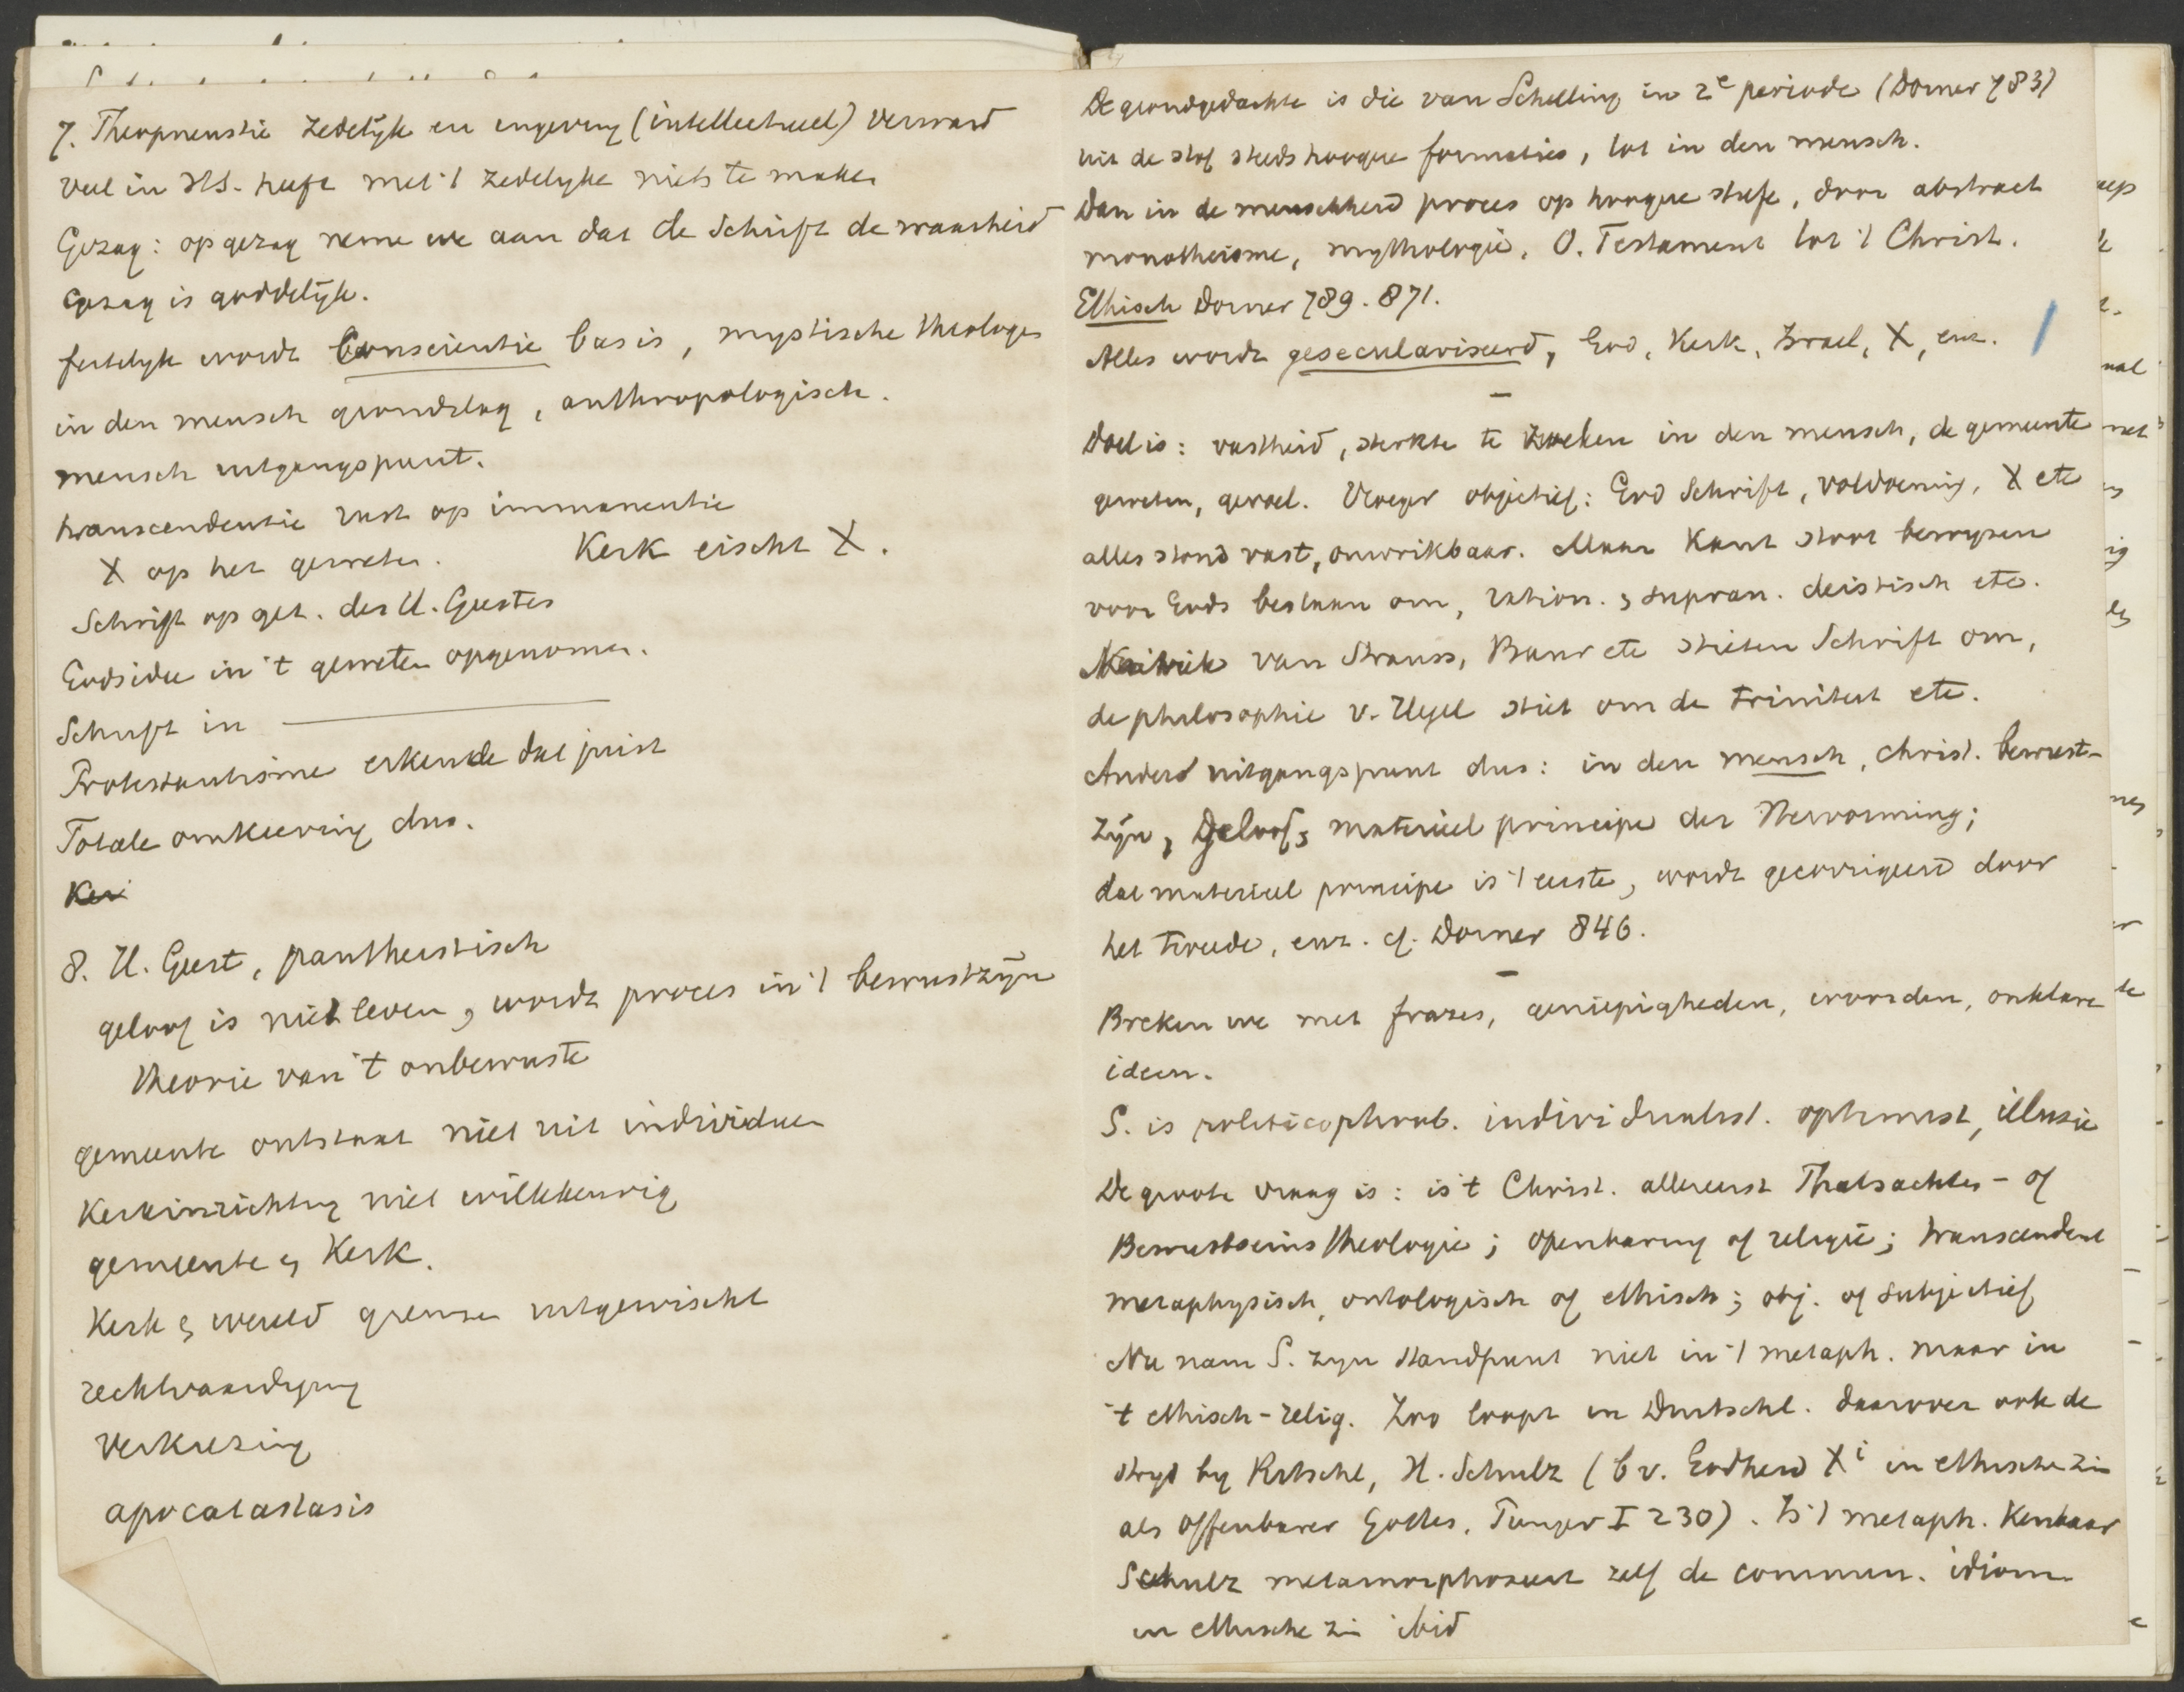 7. Theopneustie zedelijk en ingeving (intellectueel) verward
veel in HS. heeft met 't zedelyke niets te maken
Gezag: op gezag neme we aan dat de Schrift de waarheid
Gezag is goddelijk.
feitelyk wordt Conscientie basis, mystische theologen
in den mensch grondslag, anthropologisch.
mensch uitgangspunt.
transcendentie rust op immanentie
X op het geweten. Kerk eischt X.
Schrift op get. des H. Geestes
Godsidee in 't geweten opgenomen.
Schrift in ———
Protestantisme erkende dat juist
Totale omkeering dus.
8. H. Geest, pantheistisch
geloof is niet leven, wordt proces in 't bewustzijn
theorie van 't onbewuste
gemeente ontstaat niet uit individuen
Kerkinrichting niet willekeurig
gemeente en Kerk.
Kerk en wereld grenzen uitgewischt
rechtvaardiging
Verkiezing
apocatastasis
De grondgedachte is die van Schelling in 2e periode (Dorner 783)
uit de stof steeds hoogere formaties, tot in den mensch.
Dan in de menschheid proces op hoogere trap, door abstract
monotheisme, mythologie, O. Testament tot 't Christ.
Ethisch Dorner 789. 871.
Alles wordt geseculariseerd, God, Kerk, Israel, X, enz.
–
Doel is: vastheid, sterkte te zoeken in den mensch, de gemeente
geweten, gevoel. Vroeger objectief: God Schrift, voldoening, X etc
alles stond vast, onwrikbaar. Maar Kant stoot bewyzen
voor Gods bestaan om, ration. en supran. deistisch etc.
Kritiek van Strauss, Baur etc stieten Schrift om,
de philosophie v. Hegel stiet om de triniteit etc.
Ander uitgangspunt dus: in den mensch, christ. bewust-
zijn, geloof, materieel principe der Hervorming;
dat materieel principe is 't eerste, wordt gecorrigeerd door
het tweede, enz. cf. Dorner 846.
–
Breken we met frazes, geniepigheden, woorden, onklare
ideen.
S. is individualist. optimist, illusie
De groote vraag is: is 't Christ. allereerst Thatsachen- of
Bewustseins theologie; openbaring of religie; transcendent
metaphysisch, ontologisch of ethisch; obj. of subjectief
Nu nam S. zyn standpunt niet in 't metaph. maar in
't ethisch-relig. Zoo loopt in Duitschl. daarover ook de
stryd by Ritschl, H. Schulz (bv. Godheid Xi in ethische zin
als Offenbarer Gottes. I 230). Is 't metaph. kenbaar
Schulz metamorphoseert zelf de commun. idiom.
in ethische zin ibid